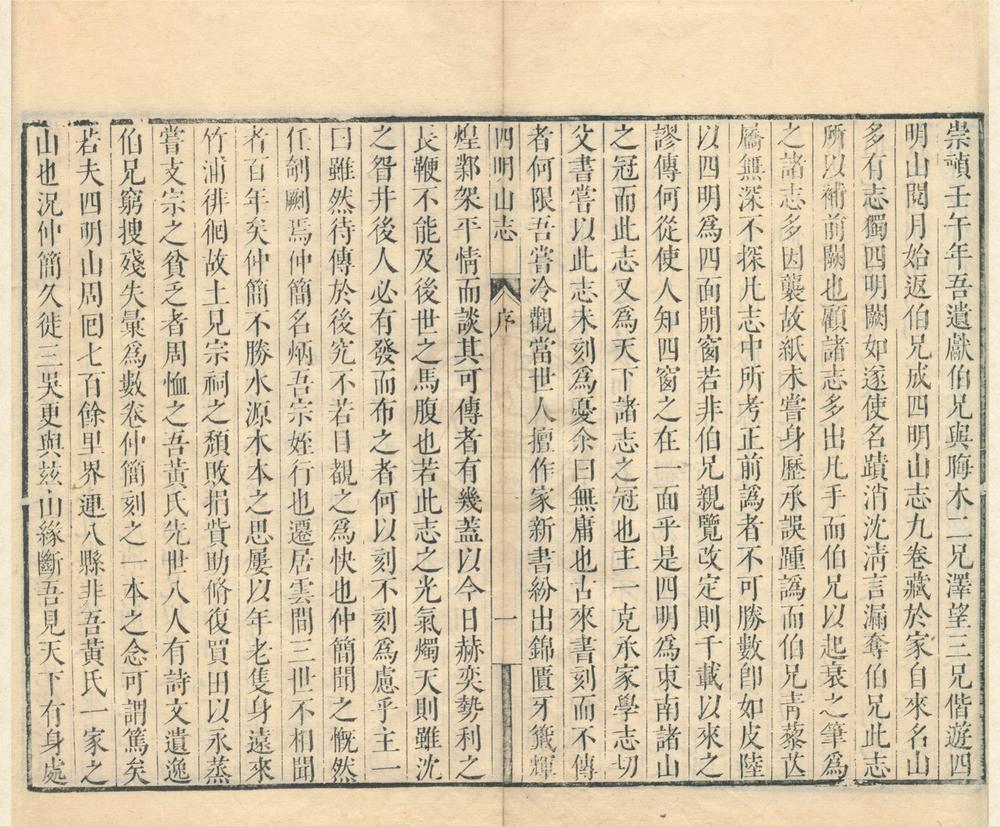 崇禎壬午年吾遺獻伯兄與晦木二兄澤望三兄偕遊四
明山閱月始返伯兄成四明山志九卷藏於家自來名山
多有志獨四明闕如遂使名蹟消沈淸言漏奪伯兄此志
所以補前闕也顧諸志多出凡手而伯兄以起衰之筆爲
之諸志多因襲故紙未嘗身歷承誤踵譌而伯兄靑藜芒
屩無深不探凡志中所考正前譌者不可勝數卽如皮陸
以四明爲四面開窗若非伯兄親覽改定則千載以來之
謬傳何從使人知四窗之在一面乎是四明爲東南諸山
之冠而此志又爲天下諸志之冠也主一克承家學志切
父書嘗以此志未刻爲憂余曰無庸也古來書刻而不傳
者何限吾嘗冷觀當世人擅作家新書紛出錦匱牙籤輝
四明山志 序 一
煌鄴架平情而談其可傳者有幾蓋以今日赫奕勢利之
長鞭不能及後世之馬腹也若此志之光氣燭天則雖沈
之眢井後人必有發而布之者何以刻不刻爲慮乎主一
曰雖然待傳於後究不若目覩之爲快也仲簡聞之慨然
任剞劂焉仲簡名炳吾宗姪行也遷居雲間三世不相聞
者百年矣仲簡不勝水源木本之思屢以年老隻身遠來
竹浦徘徊故土兄宗祠之頹敗捐貲助脩復買田以永蒸
嘗支宗之貧乏者周恤之吾黃氏先世八人有詩文遺逸
伯兄窮搜殘失彙爲數卷仲簡刻之一本之念可謂篤矣
若夫四明山周回七百餘里界連八縣非吾黃氏一家之
山也況仲簡久徙三吳更與兹山緣斷吾見天下有身處